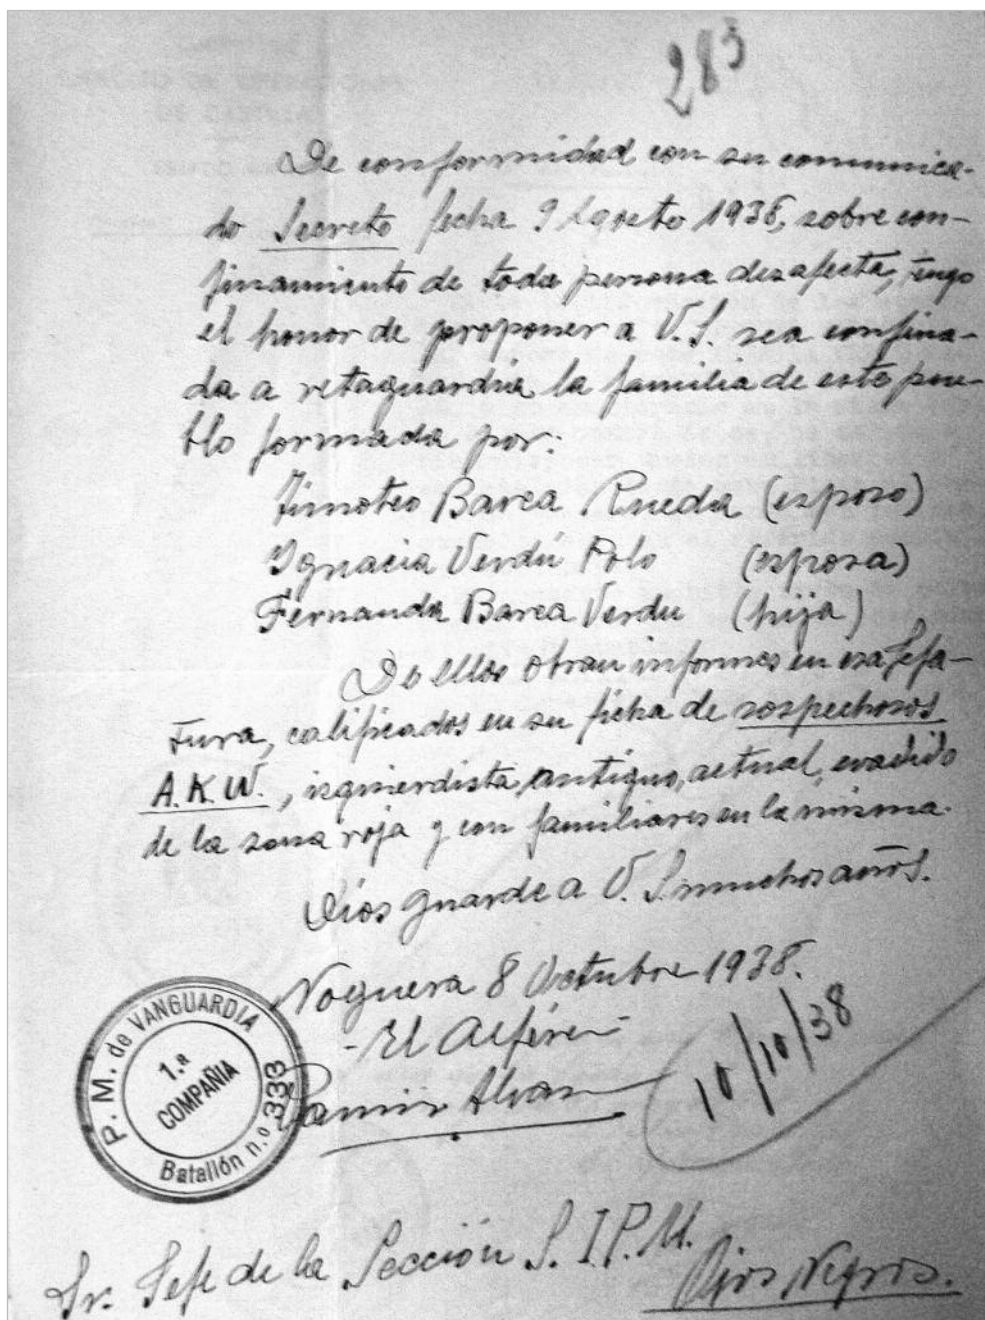 283
De conformidad con su comunica-
do Secreto fecha 9 Agosto 1938, sobre con-
finamiento de toda persona desafecta, tengo
el honor de proponer a V.S. sea confina-
da a retaguardia la familia de este pue-
blo formada por:
Timoteo Barea Rueda (esposo)
Ignacia Verdú Polo (esposa)
Fernanda Barea Verdu (hija)
De ellos obran informes en esa Jefa-
tura, calificados en su ficha de sospechosos
A.K.W., izquierdista, antiguo, actual, evadido
de la zona roja y con familiares en la misma.
Dios guarde a V. S. muchos años.
Noguera 8 Octubre 1938.
- El Alférez -
Ramir Alvar
10/10/38
P. M. de VANGUARDIA
1.ª
COMPAÑIA
Batallón n.º 333
Sr. Jefe de la Sección S.I.P.M.
Ojos Negros.